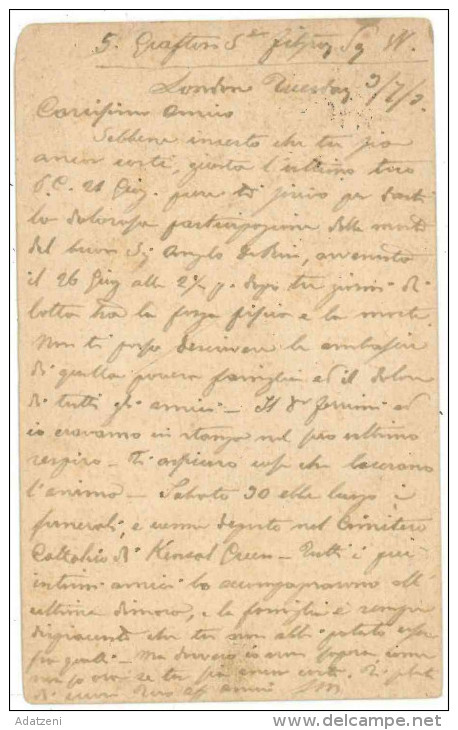 5. Grafton St Fitzroy Sq W.
London Tuesday 3/7/
Carissimo amico
Sebbene incerto che tu sia
ancor costì, questa l'ultima tua
p.c. 21 Giug. pure ti scrivo per darti
la dolorosa partecipazione della morte
del buon Sig Angelo avvenuta
il 26 Giug alle 2½ p. dopo tre giorni di
lotta tra la forza fisica e la morte.
Non ti posso descrivere le ambascie
di quella povera famiglia ed il dolore
di tutti gli amici – Il Dr ed
io eravamo in stanza nel suo ultimo
respiro – Ti assicuro cose che lacerano
l'anima – Sabato 30 ebbe luogo i
funerali, e venne deposto nel Cimitero
Cattolico di Kensal Green – Tutti i suoi
intimi amici lo accompagnarono all'
ultima dimora, e la famiglia è sempre
dispiacente che tu non abbi potuto esser
fra quelli – Ma davvero
non so ora se tu sia ancor costì.
di cuore tuo aff amico
Adatzeni
www.delcampe.net